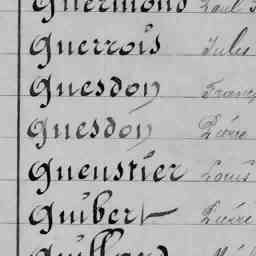 Guermond Paul
Guerrois Jules
Guesdon Franç
Guesdon Pierre
Gueustier Louis
Guibert Pierre
Guillard